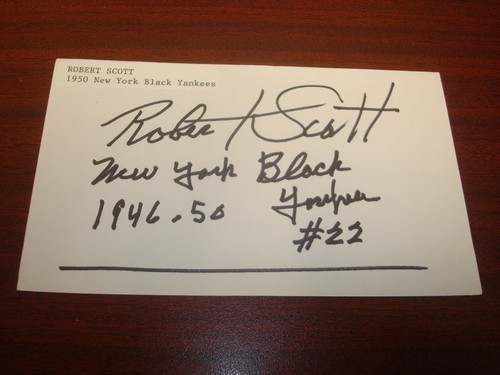 ROBERT SCOTT
1950 New York Black Yankees
Robert Scott
New York Black
Yankees
1946.50
#22